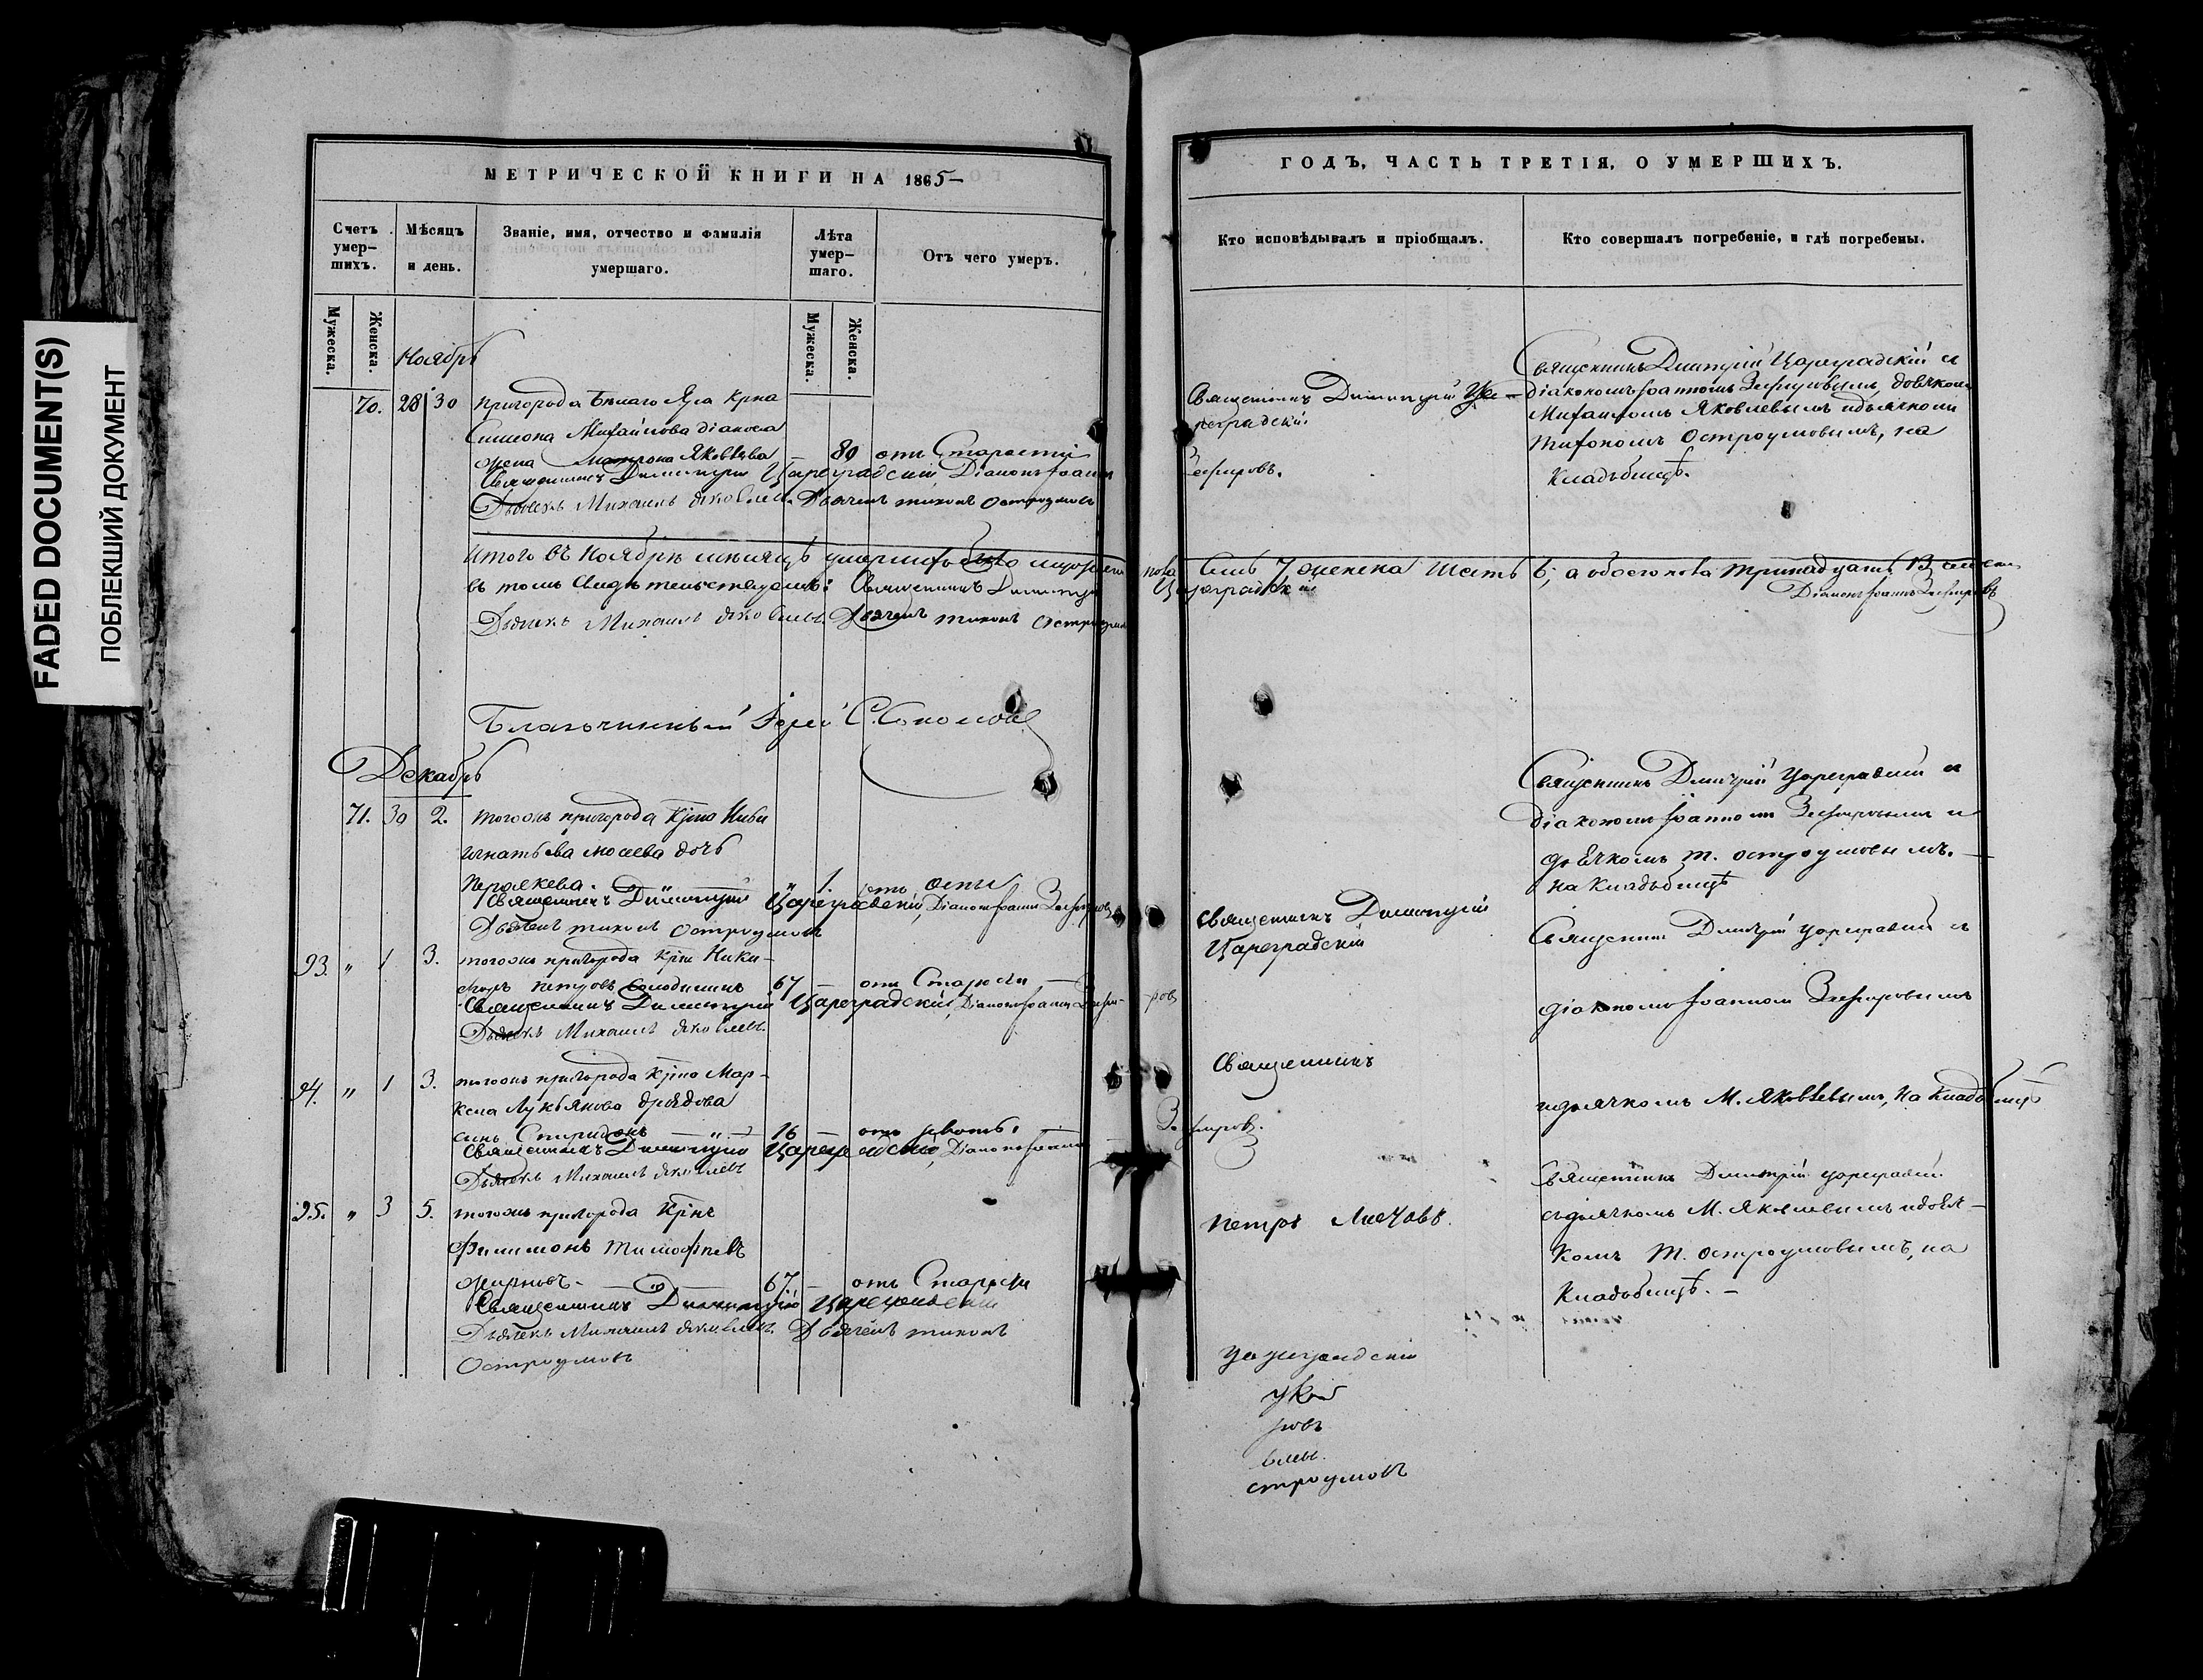 FADED DOCUMENT(S)
ПОБЛЕКШИЙ ДОКУМЕНТ
МЕТРИЧЕСКОЙ КНИГИ НА 1865
Счетъ умер-шихъ.
Мѣсяцъ и день.
Званіе, имя, отчество и фамилія умершаго.
Лѣта умер-шаго.
Отъ чего умеръ.
Мужеска.
Женска.
Мужеска.
Женска.
Ноябрь
70. 28 30 Пригорода Бѣлаго Яра Крна
Симеона Михайлова
жена Яковлева — 80 отъ Старости
Священникъ Димитрій Цареградскій, Діаконъ Іоаннъ
Дьячекъ Михаилъ Яковлевъ. Дьячекъ Тихонъ Остроумовъ
Итого въ Ноябрѣ мѣсяцѣ умершихъ было мужеска
въ томъ свидѣтельствуемъ: Священникъ Димитрій
Дьячекъ Михаилъ Яковлевъ. Дьячекъ Тихонъ Остроумовъ
Благочинный Іерей С. Соколовъ
Декабрь
71. 30 2. тогожъ пригорода Крна
Игнатьева дочь
" 1. отъ оспы
Священникъ Димитрій Цареградскій, Діаконъ Іоаннъ Зефировъ
Дьячекъ Тихонъ Остроумовъ
93. " 1 3. тогожъ пригорода Крнъ Ники-
Петровъ 67 — отъ Старости —
Священникъ Димитрій Цареградскій, Діаконъ Іоаннъ Зефи-
Дьячекъ Михаилъ Яковлевъ
94. " 1 3. тогожъ пригорода Крна Мар-
кела Лукьянова
сынъ Спиридонъ 16 — отъ
Священникъ Димитрій Цареградскій, Діаконъ Іоаннъ
Дьячекъ Михаилъ Яковлевъ
95. " 3 5. тогожъ пригорода Крнъ
Филимонъ Тимофѣевъ
67. — отъ Старости
Священникъ Димитрій Цареградскій
Дьячекъ Михаилъ Яковлевъ. Дьячекъ Тихонъ
Остроумовъ
ГОДЪ, ЧАСТЬ ТРЕТІЯ, О УМЕРШИХЪ.
Кто исповѣдывалъ и пріобщалъ.
Кто совершалъ погребеніе, и гдѣ погребены.
Священникъ Димитрій Ца-
реградскій
Зефировъ.
Священникъ Димитрій Цареградскій съ
діакономъ Іоанномъ Зефировымъ, дьячкомъ
Михаиломъ Яковлевымъ и дьячкомъ
Тихономъ Остроумовымъ, на
Кладбищѣ.
пола семь 7 женска шесть 6, а обоего пола тринадцать 13
Цареградскій
Діаконъ Іоаннъ Зефировъ
Священникъ Димитрій Цареградскій съ
діакономъ Іоанномъ Зефировымъ и
дьячкомъ Т. Остроумовымъ.
на Кладбищѣ
Священникъ Димитрій
Цареградскій
Священникъ Димитрій Цареградскій съ
діакономъ Іоанномъ Зефировымъ
-ровъ
Священникъ
и дьячкомъ М. Яковлевымъ, на Кладбищѣ
Зефировъ.
Петръ
Священникъ Димитрій Цареградскій
съ дьячкомъ М. Яковлевымъ и дьяч-
комъ Т. Остроумовымъ, на
Кладбищѣ. —
Цареградскій
ровъ
влевъ.
строумовъ